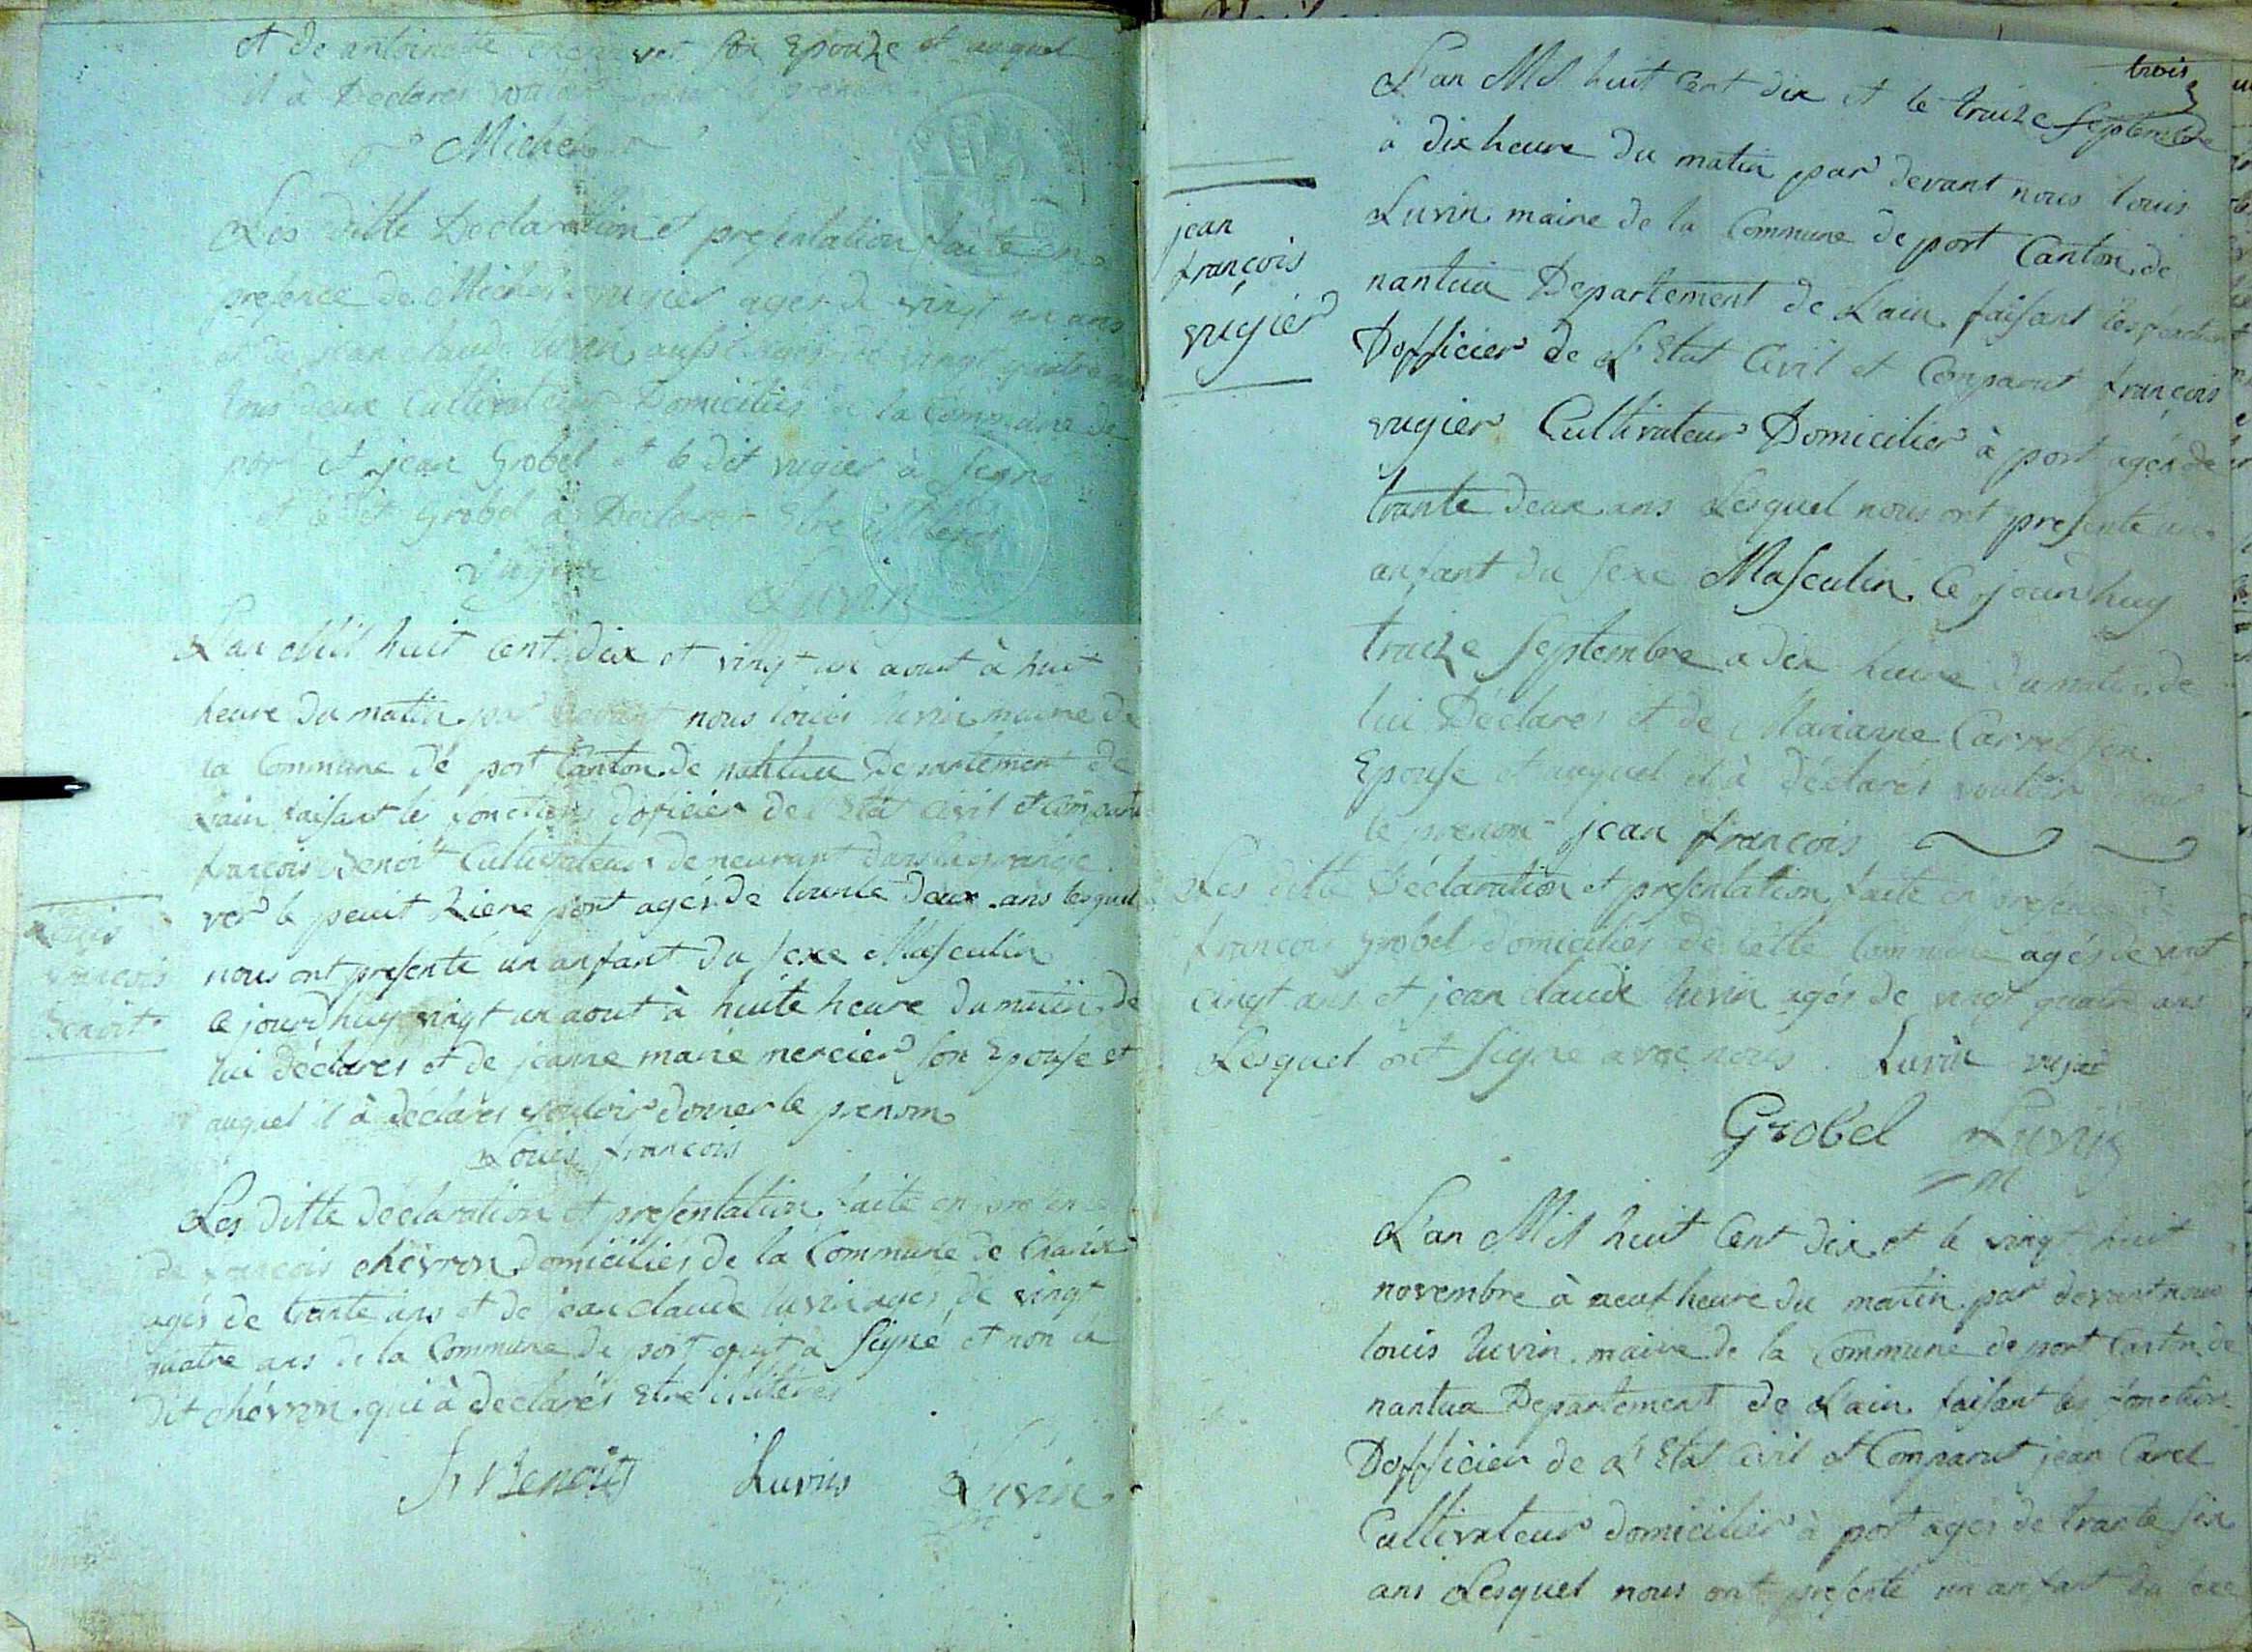 et de antoinette son Epouze et auquel
il à Declarer vouloir donner prenom
Michel
Les ditte Declaration et presentation faite en
presence de Michel vugier agés de vingt un ans
et de jean claude luvin aussi agés de vingt quatre ans
tous deux Cultivateur Domiciliés à la Commune de
port et jean Grobel et le dit vugier à signe
et le dit Grobel à Declarer Etre illiterés
vugier
Luvin
L'an Mil huit Cent dix et vingt un aout à huit
heure du matin par devant nous louis luvin maire de
la Commune dé port Canton de nantua Departement de
L'ain faisant le fonction doficier de l'Etat Civil et Comparut
françois Benoit Cultivateur demeurant
ver le port agés de trante deux ans lesquel
nous ont presenté un anfant du sexe Masculin
Ce jourdhuy vingt un aout à huite heure du matin de
lui déclarer et de jeanne marie mercier son Epouse et
auquel il à déclarés vouloir donner le prenom
Louis françois
Louis
françois
Benoit
Les ditte déclaration et presentation faite en presence
de françois chévron domiciliés de la Commune de Charix
agés de trante ans et de jean claude luvin agés de vingt
quatre ans de la Commune de port à signé et non le
dit chévron qui à declarés Etre illiterés
f Benoit Luvin Luvin
trois
L'an Mil huit Cent dix et le traize Septembre
à dix heure du matin par devant nous louis
Luvin maire de la Commune de port Canton de
nantua Departement de L'ain faisant les fonction
Dofficier de L'Etat Civil et Comparut françois
vugier Cultivateur Domicilier à port agés de
trante deux ans Lesquel nous ont presenté un
anfant du sexe Masculin Ce jourdhuy
traize Septembre a dix heure du matin de
lui Déclarer et de Marianne Carrel son
Epouse et auquel il à déclarés vouloir donner
le prenom jean françois
jean
françois
vugier
Les ditte Déclaration et presentation faite en presence de
françois Grobel domiciliés de cette Commune agés de vint
cingt ans et jean claude luvin agés de vingt quatre ans
Lesquel ont signe avec nous Luvin vugier
Grobel Luvin
L'an Mil huit Cent dix et le vingt huit
novembre à neuf heure du matin par devant nous
louis luvin maire de la Commune de port Canton de
nantua Departement de L'ain faisant les fonction
Dofficier de L'Etat Civil et Comparut jean Carel
Cultivateur domicilier à port agés de trante six
ans Lesquel nous ont presenté un anfant du sexe